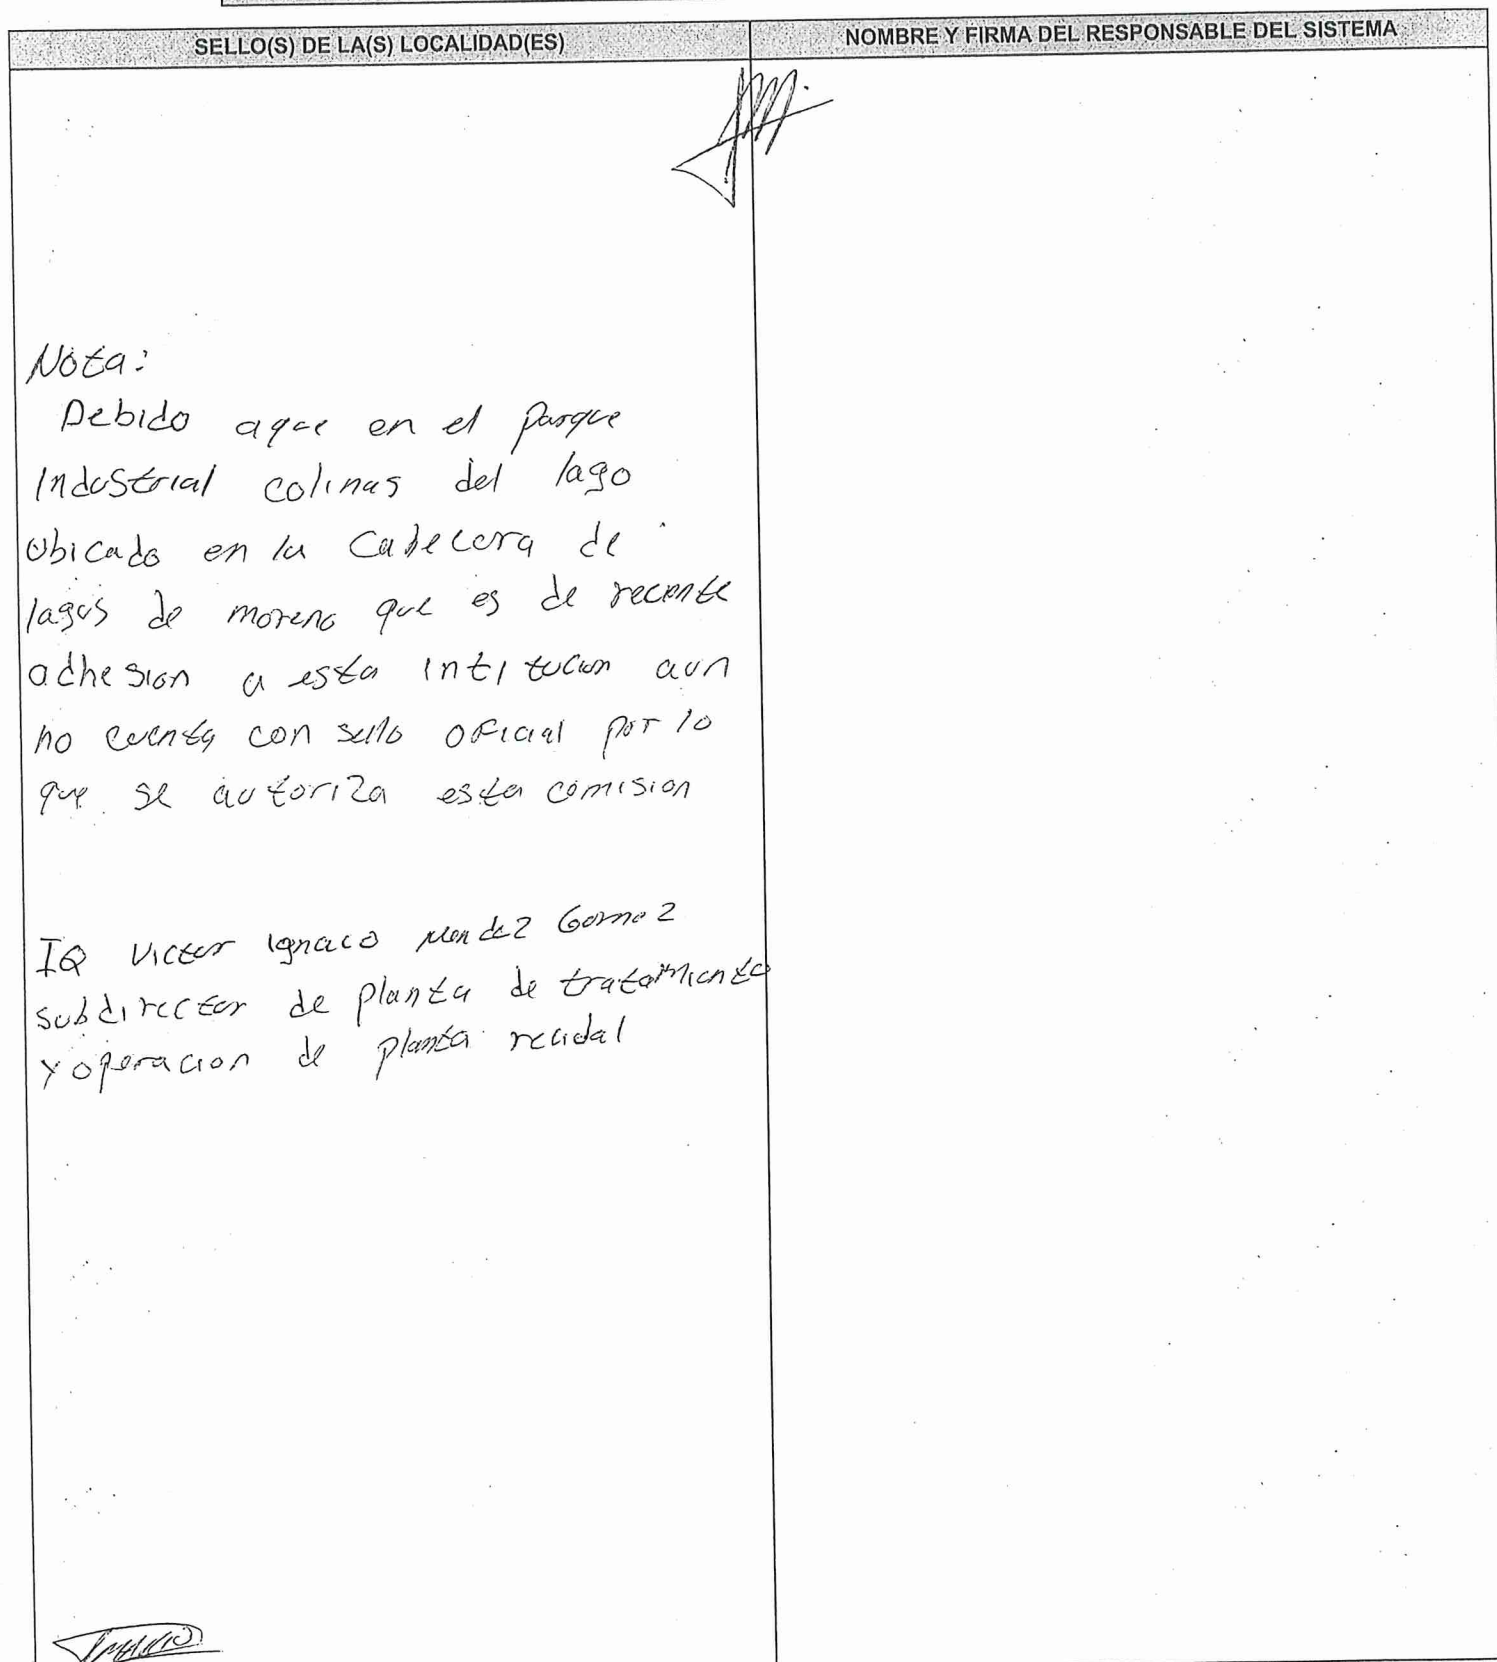 SELLO(S) DE LA(S) LOCALIDAD(ES)
NOMBRE Y FIRMA DEL RESPONSABLE DEL SISTEMA
Nota:
Debido aque en el parque
Industrial colinas del lago
Ubicado en la Cabecera de
lagos de moreno que es de recente
adhesion a esta intitucion aun
no cuenta con sello oficial por lo
que se autoriza esta comision
IQ Victor Ignaco Mendez Gomez
subdirector de planta de tratamiento
y operacion de planta